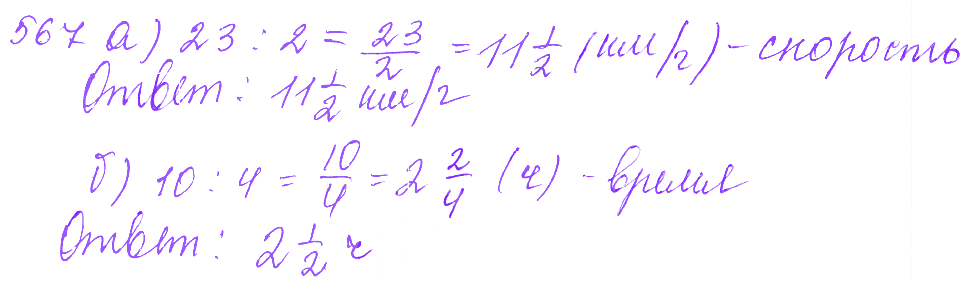 567 а) 23 : 2 = 23/2 = 11 1/2 (км/ч) - скорость
Ответ: 11 1/2 км/ч
б) 10 : 4 = 10/4 = 2 2/4 (ч) - время
Ответ: 2 1/2 ч